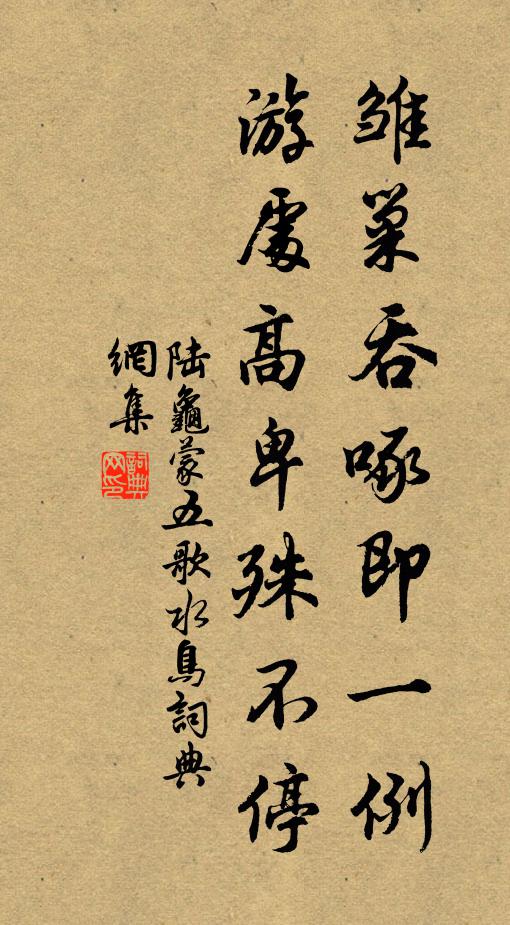 雏巢吞啄即一例
游處高卑殊不停
陆龜蒙五歌水鳥詞典
網集
詞典
网印